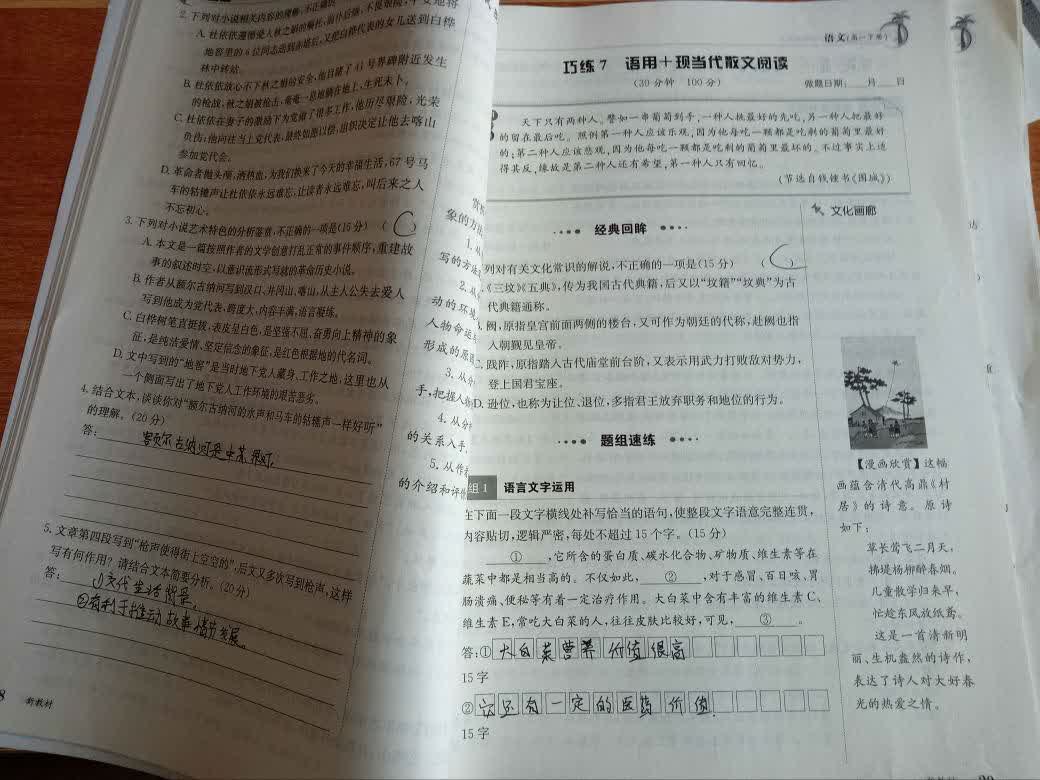 2. 下列对小说相关内容的理解,不正确的
林中转站。
B. 杜依依放心不下秋之娟的安全,他目睹了41号界碑附近发生
的枪战,秋之娟被枪击,毫毫一息地躺在地上,生死未卜。
C. 杜依依在妻子的激励下为党做了很多工作,他历尽艰险,光荣
负伤;他向往当上党代表,最终如愿以偿,组织决定让他去喀山
参加党代会。
D. 革命者抛头颅,洒热血,为我们换来了今天的幸福生活,67号马
车的轱辘声让杜依依永远难忘,让读者永远难忘,叫后来之人
不忘初心。
3. 下列对小说艺术特色的分析鉴赏,不正确的一项是(15分) ( C
A. 本文是一篇按照作者的文学创意打乱正常的事件顺序,重建故
事的叙述时空,以意识流形式写就的革命历史小说。
B. 作者从额尔古纳河写到汉口、井冈山、喀山,从主人公失去爱人
写到他成为党代表,跨度大,内容丰满,语言凝练。
C. 白桦树笔直挺拔,表皮呈白色,是坚强不屈、奋勇向上精神的象
征,是纯洁爱情、坚定信念的象征,是红色根据地的代名词。
D. 文中写到的“地窖”是当时地下党人藏身、工作之地,这里也从
一个侧面写出了地下党人工作环境的艰苦恶劣。
4. 结合文本,谈谈你对“额尔古纳河的水声和马车的轱辘声一样好听”
的理解。(20分)
答:
5. 文章第四段写到“枪声使得街上空空的”,后文又多次写到枪声,这样
写有何作用?请结合文本简要分析。(20分)
答: ①交代生活背景,
②有利于推动故事情节发展。
新教材
象的方
1. 从
写的方法
2. 从
动的环境
人物命运
形成的原因
3. 从分
手,把握人
4. 从分
的关系入手,
5. 从作
的介绍和评
语文(高一下册)
巧练7 语用+现当代散文阅读
(30分钟 100分) 做题日期:____月____日
天下只有两种人。譬如一串葡萄到手,一种人挑最好的先吃,另一种人把最好
的留在最后吃。照例第一种人应该乐观,因为他每吃一颗都是吃剩的葡萄里最好
的;第二种人应该悲观,因为他每吃一颗都是吃剩的葡萄里最坏的。不过事实上适
得其反,缘故是第二种人还有希望,第一种人只有回忆。
(节选自钱锺书《围城》)
经典回眸
列对有关文化常识的解说,不正确的一项是(15分) ( C )
《三坟》《五典》,传为我国古代典籍,后又以“坟籍”“坟典”为古
代典籍通称。
阙,原指皇宫前面两侧的楼台,又可作为朝廷的代称,赴阙也指
入朝觐见皇帝。
C. 践阼,原指踏入古代庙堂前台阶,又表示用武力打败敌对势力,
登上国君宝座。
D. 逊位,也称为让位、退位,多指君王放弃职务和地位的行为。
题组速练
组1 语言文字运用
在下面一段文字横线处补写恰当的语句,使整段文字语意完整连贯,
内容贴切,逻辑严密,每处不超过15个字。(15分)
____①____,它所含的蛋白质、碳水化合物、矿物质、维生素等在
蔬菜中都是相当高的。不仅如此,____②____,对于感冒、百日咳、胃
肠溃疡、便秘等有着一定治疗作用。大白菜中含有丰富的维生素C、
维生素E,常吃大白菜的人,往往皮肤比较好,可见,____③____。
答:①大白菜营养价值很高
15字
②它还有一定的医药价值.
15字
文化画廊
【漫画欣赏】这幅
画蕴含清代高鼎《村
居》的诗意。原诗
如下:
草长莺飞二月天,
拂堤杨柳醉春烟。
儿童散学归来早,
忙趁东风放纸鸢。
这是一首清新明
丽、生机盎然的诗作,
表达了诗人对大好春
光的热爱之情。